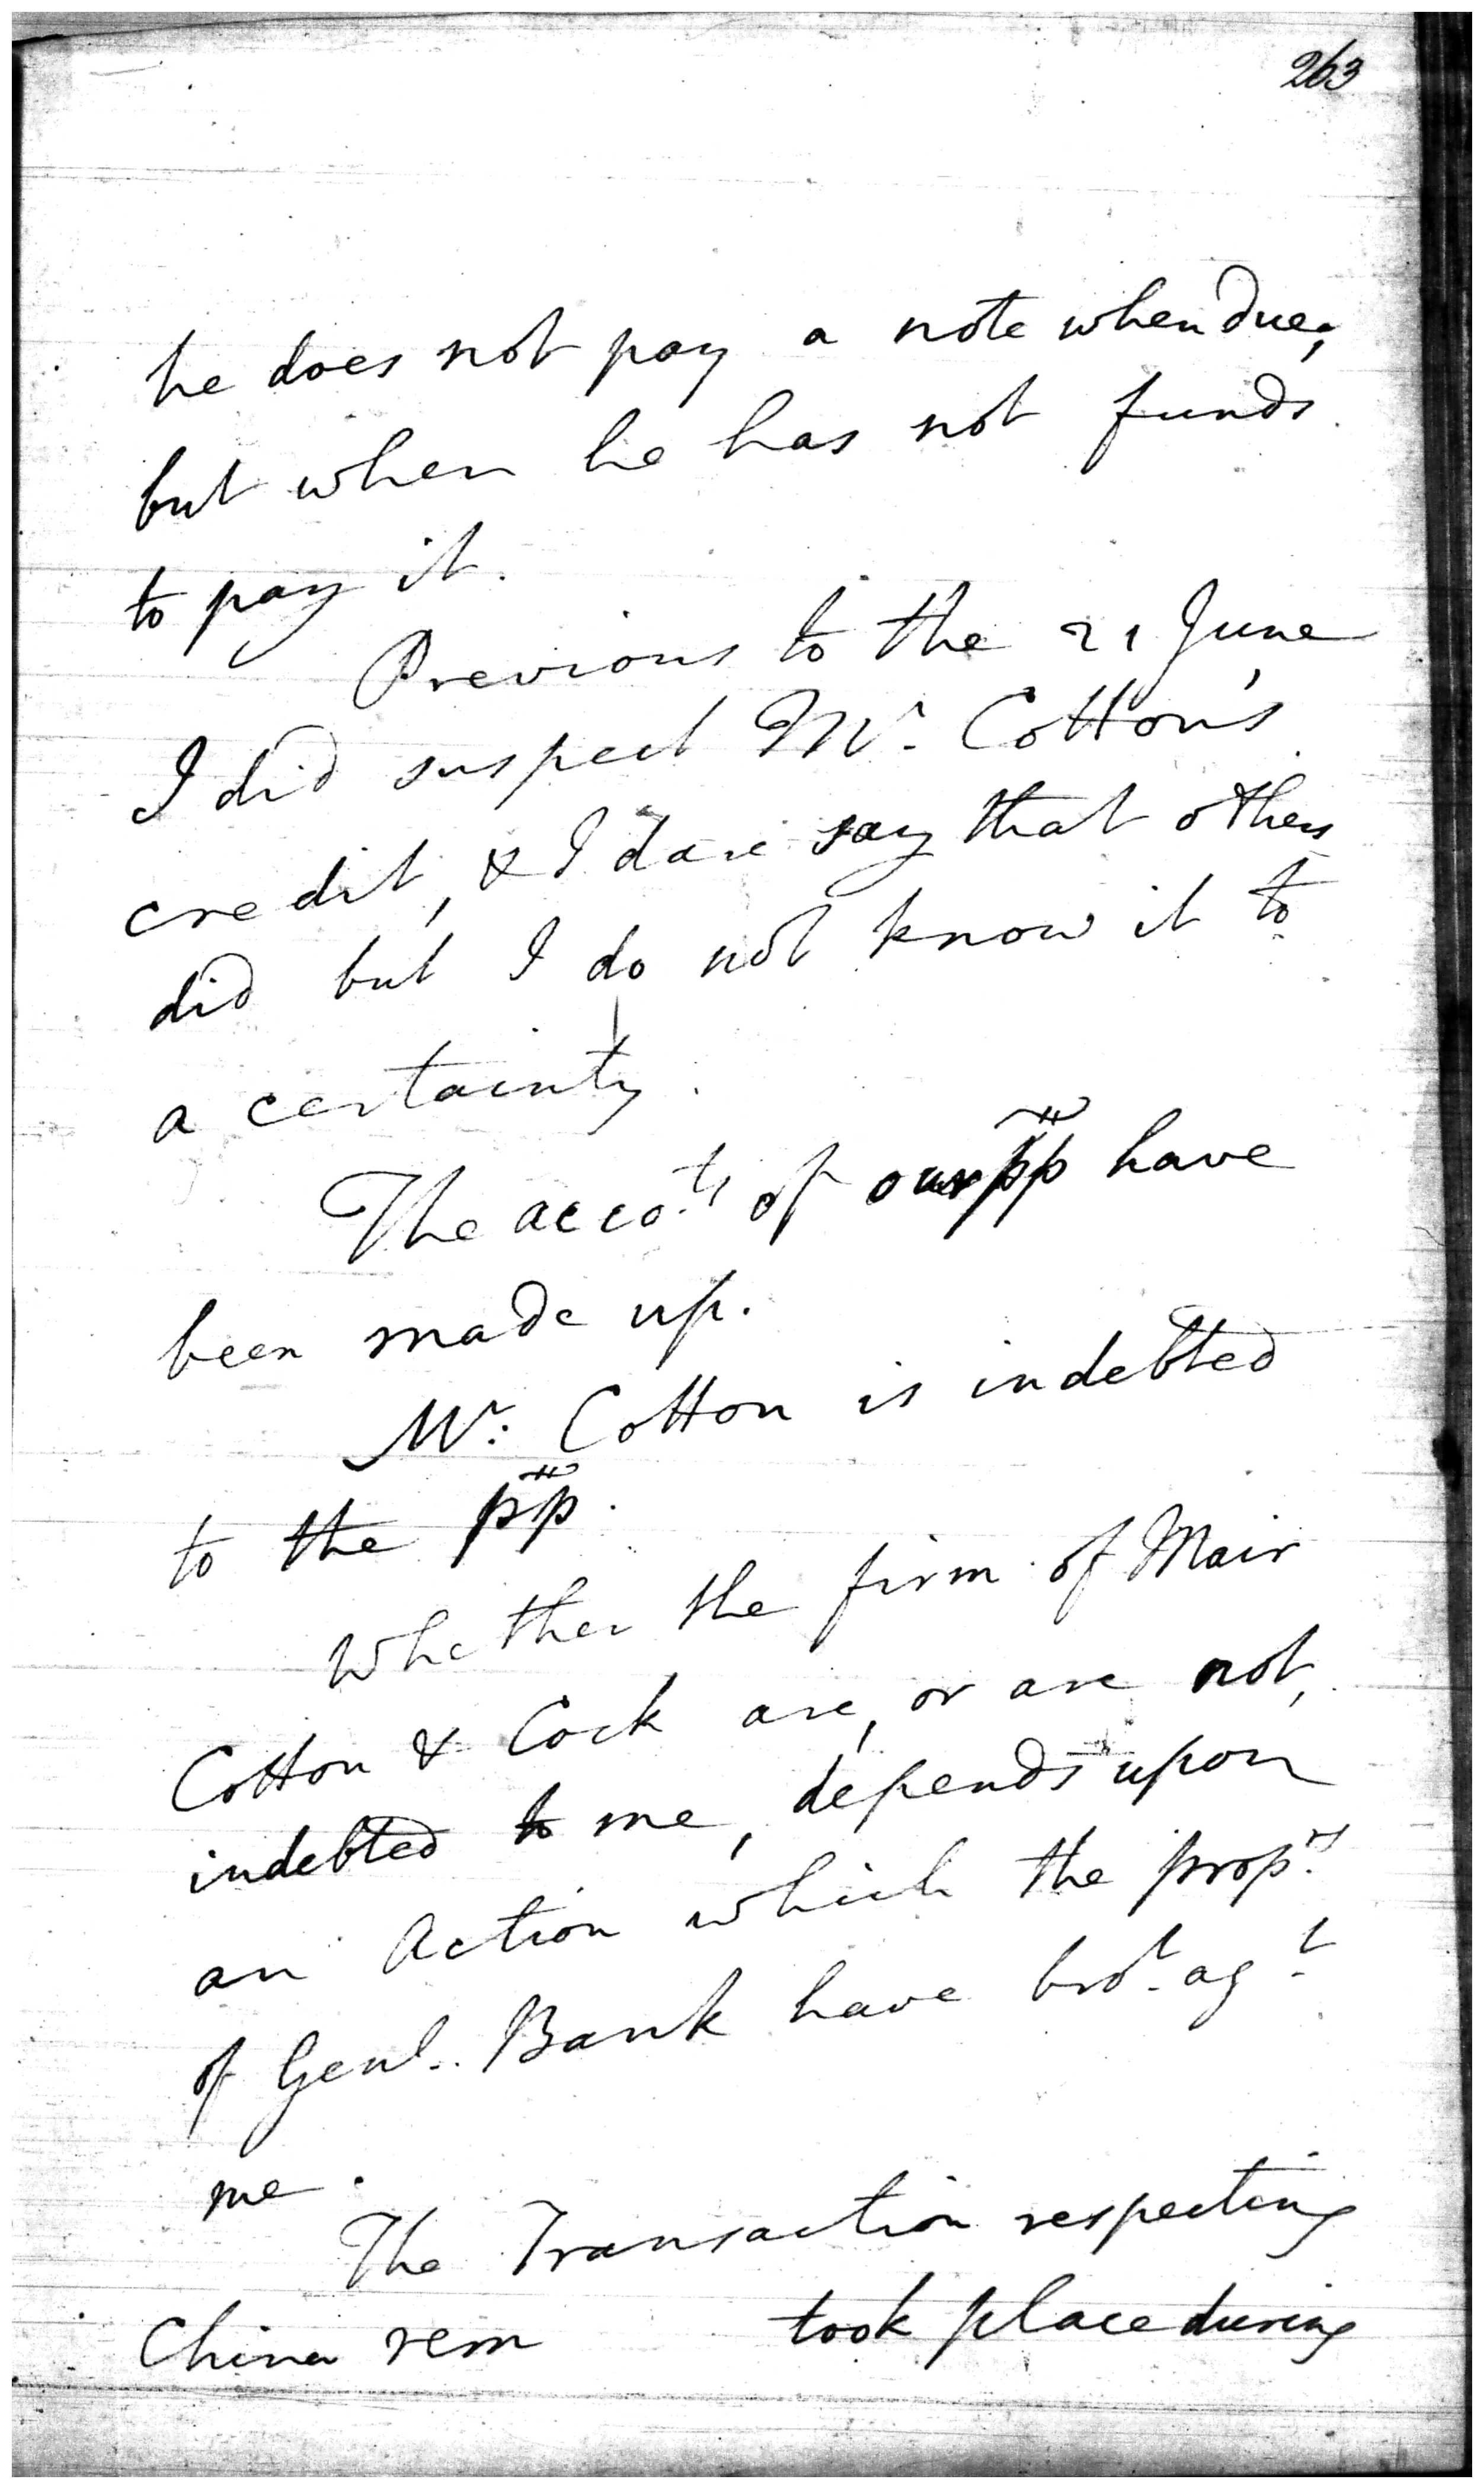 263
he does not pay a note when due,
but when he has not funds
to pay it.
Previous to the 21 June
I did suspect Mr. Cotton's
credit, & I dare say that others
did but I do not know it to
a certainty.
The accots. of our pp have
been made up.
Mr: Cotton is indebted
to the pp.
Whether the firm of Mair
Cotton & Cock are, or are not,
indebted to me, depends upon
an Action which the proprs.
of Genl. Bank have brot. agt.
me.
The Transaction respecting
China rem took place during